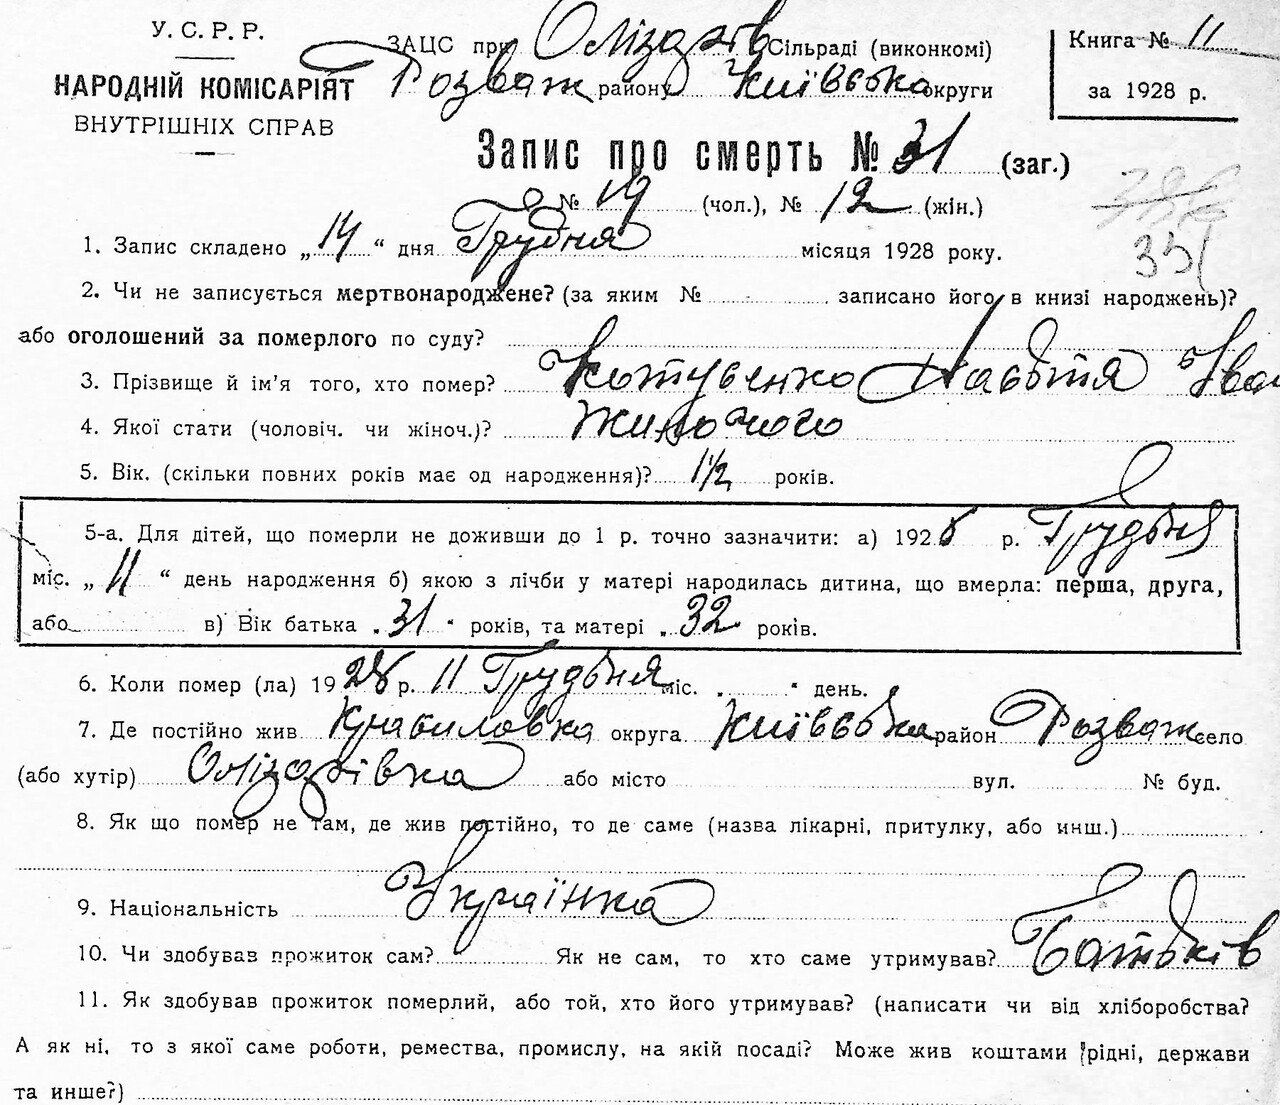 У. С. Р. Р.
НАРОДНІЙ КОМІСАРІЯТ
ВНУТРІШНІХ СПРАВ
ЗАЦС при Олізарів Сільраді (виконкомі)
Розваж району Київська округи
Книга № 11
за 1928 р.
Запис про смерть № 31 (заг.)
№ 19 (чол.), № 12 (жін.)
351
1. Запис складено „14“ дня Грудня місяця 1928 року.
2. Чи не записується мертвонароджене? (за яким № записано його в книзі народжень)?
або оголошений за померлого по суду?
3. Прізвище й ім'я того, хто помер? Іван
4. Якої стати (чоловіч. чи жіноч.)? Жиночого
5. Вік. (скільки повних років має од народження)? 1½ років.
5-а. Для дітей, що померли не доживши до 1 р. точно зазначити: а) 1926 р. Грудьня
міс. „11“ день народження б) якою з лічби у матері народилась дитина, що вмерла: перша, друга,
або в) Вік батька „31“ років, та матері „32 років.
6. Коли помер (ла) 1928 р. 11 Грудьня міс. „ “ день.
7. Де постійно жив округа Київська район Розваж село
(або хутір) Олізарівка або місто вул. № буд.
8. Як що помер не там, де жив постійно, то де саме (назва лікарні, притулку, або инш.)
9. Національність Українка
10. Чи здобував прожиток сам? Як не сам, то хто саме утримував? Батьків
11. Як здобував прожиток померлий, або той, хто його утримував? (написати чи від хліборобства?
А як ні, то з якої саме роботи, ремества, промислу, на якій посаді? Може жив коштами рідні, держави
та инше?)